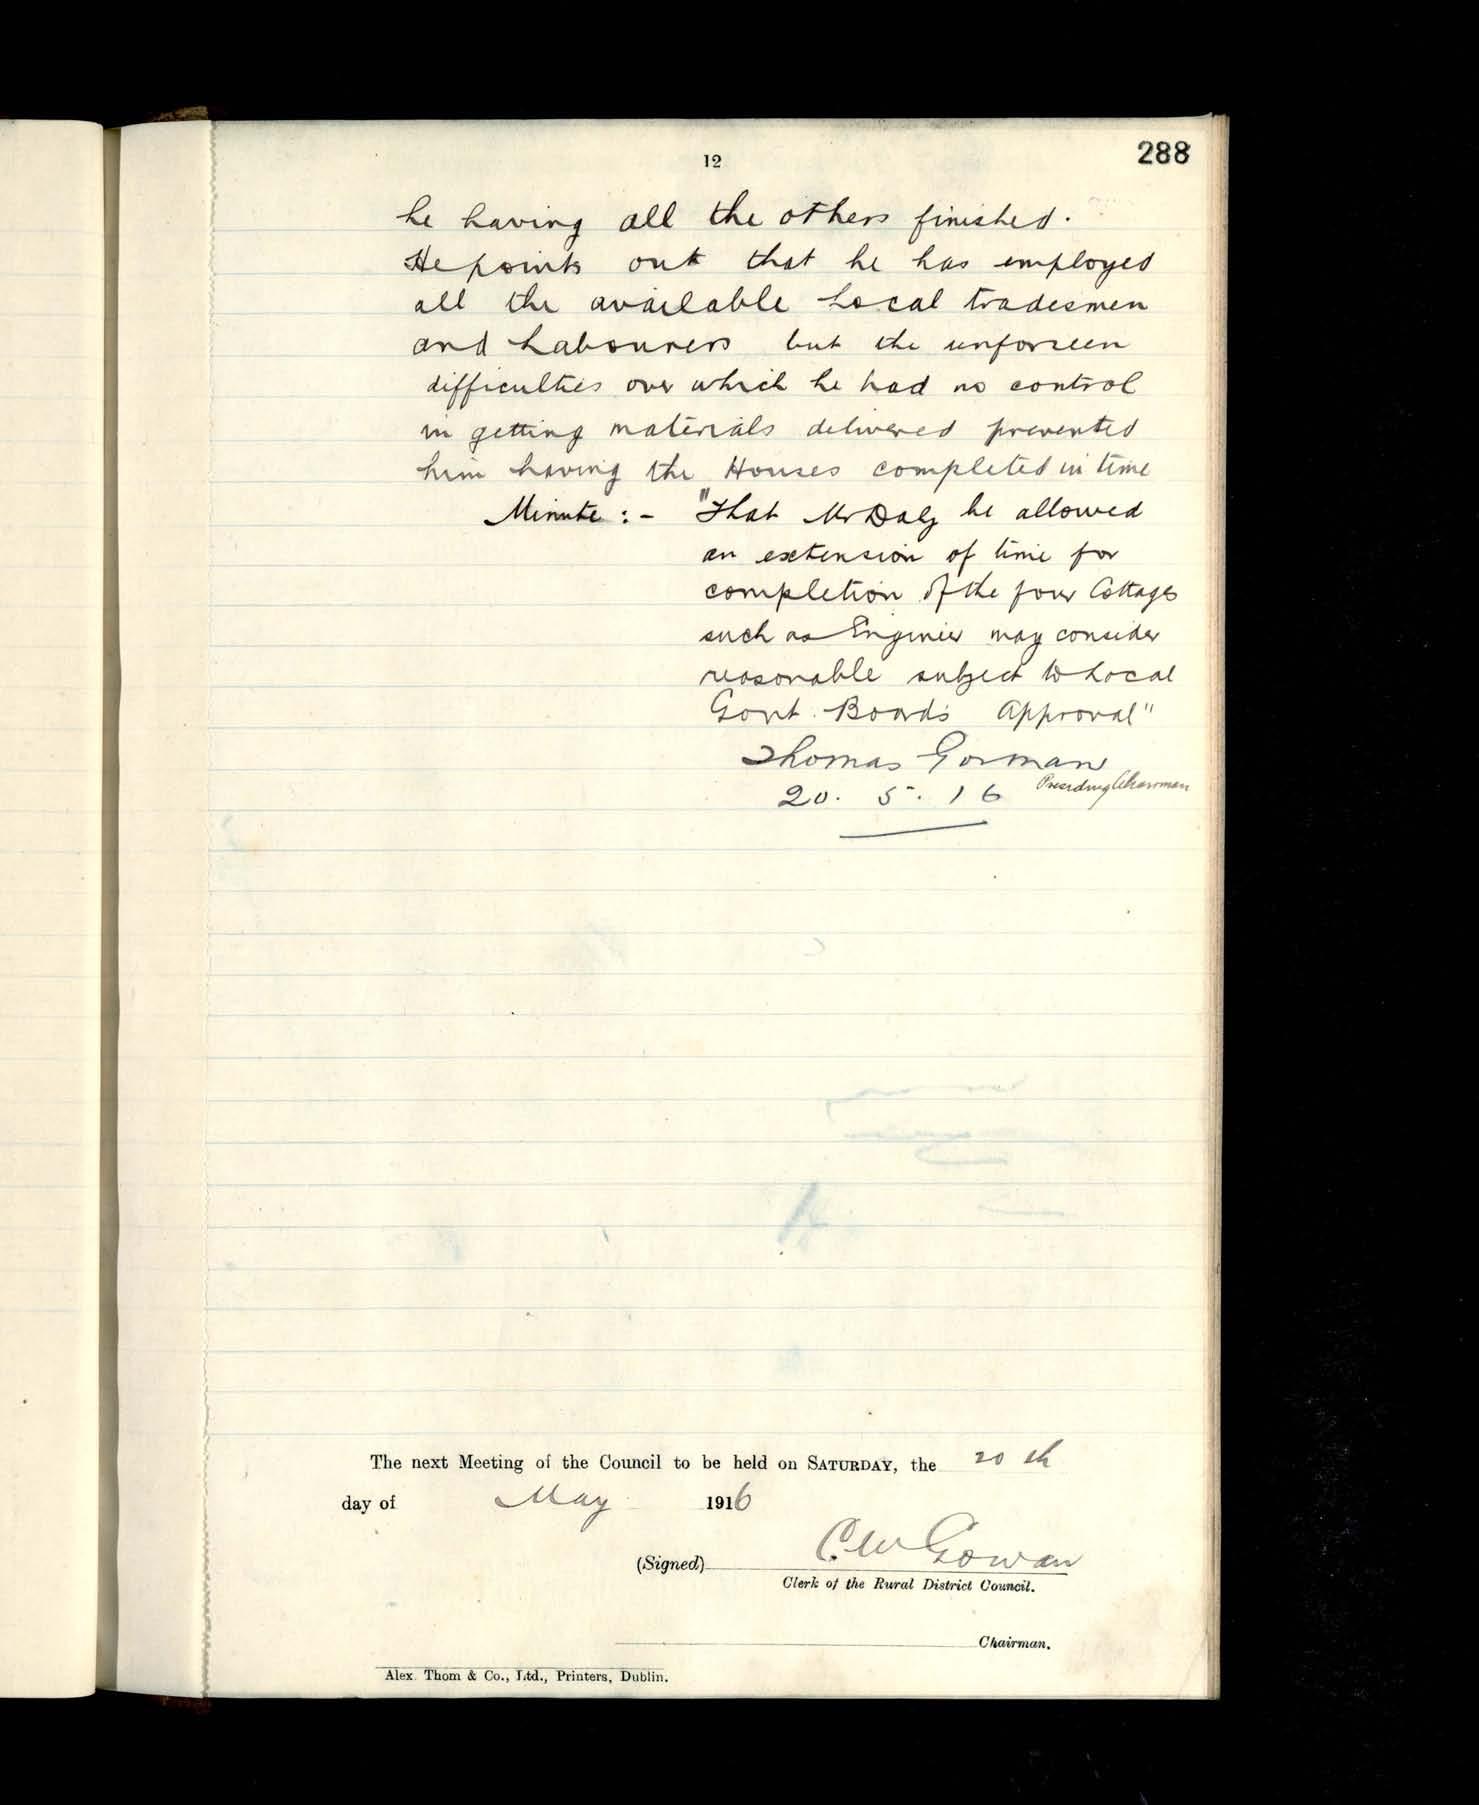 12
288
he having all the others finished.
He points out that he has employed
all the available Local tradesmen
and Labourers but the unforseen
difficulties over which he had no control
in getting materials delivered prevented
him having the Houses completed in time
Minute :- "That Mr Daly be allowed
an extension of time for
completion of the four Cottages
such as Engineer may consider
reasonable subject to Local
Govt. Board's Approval"
Thomas Gorman
Presiding Chairman
20. 5. 16
The next Meeting of the Council to be held on SATURDAY, the 20th
day of May 1916
(Signed) C. W Gowan
Clerk of the Rural District Council.
Chairman.
Alex. Thom & Co., Ltd., Printers, Dublin.